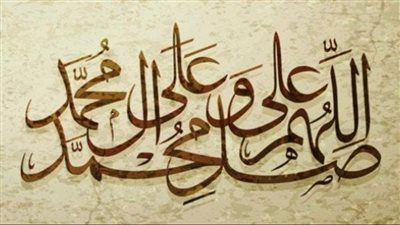 اللّٰهُمَّ صَلِّ عَلَى مُحَمَّدٍ وَ عَلَى آلِ مُحَمَّد